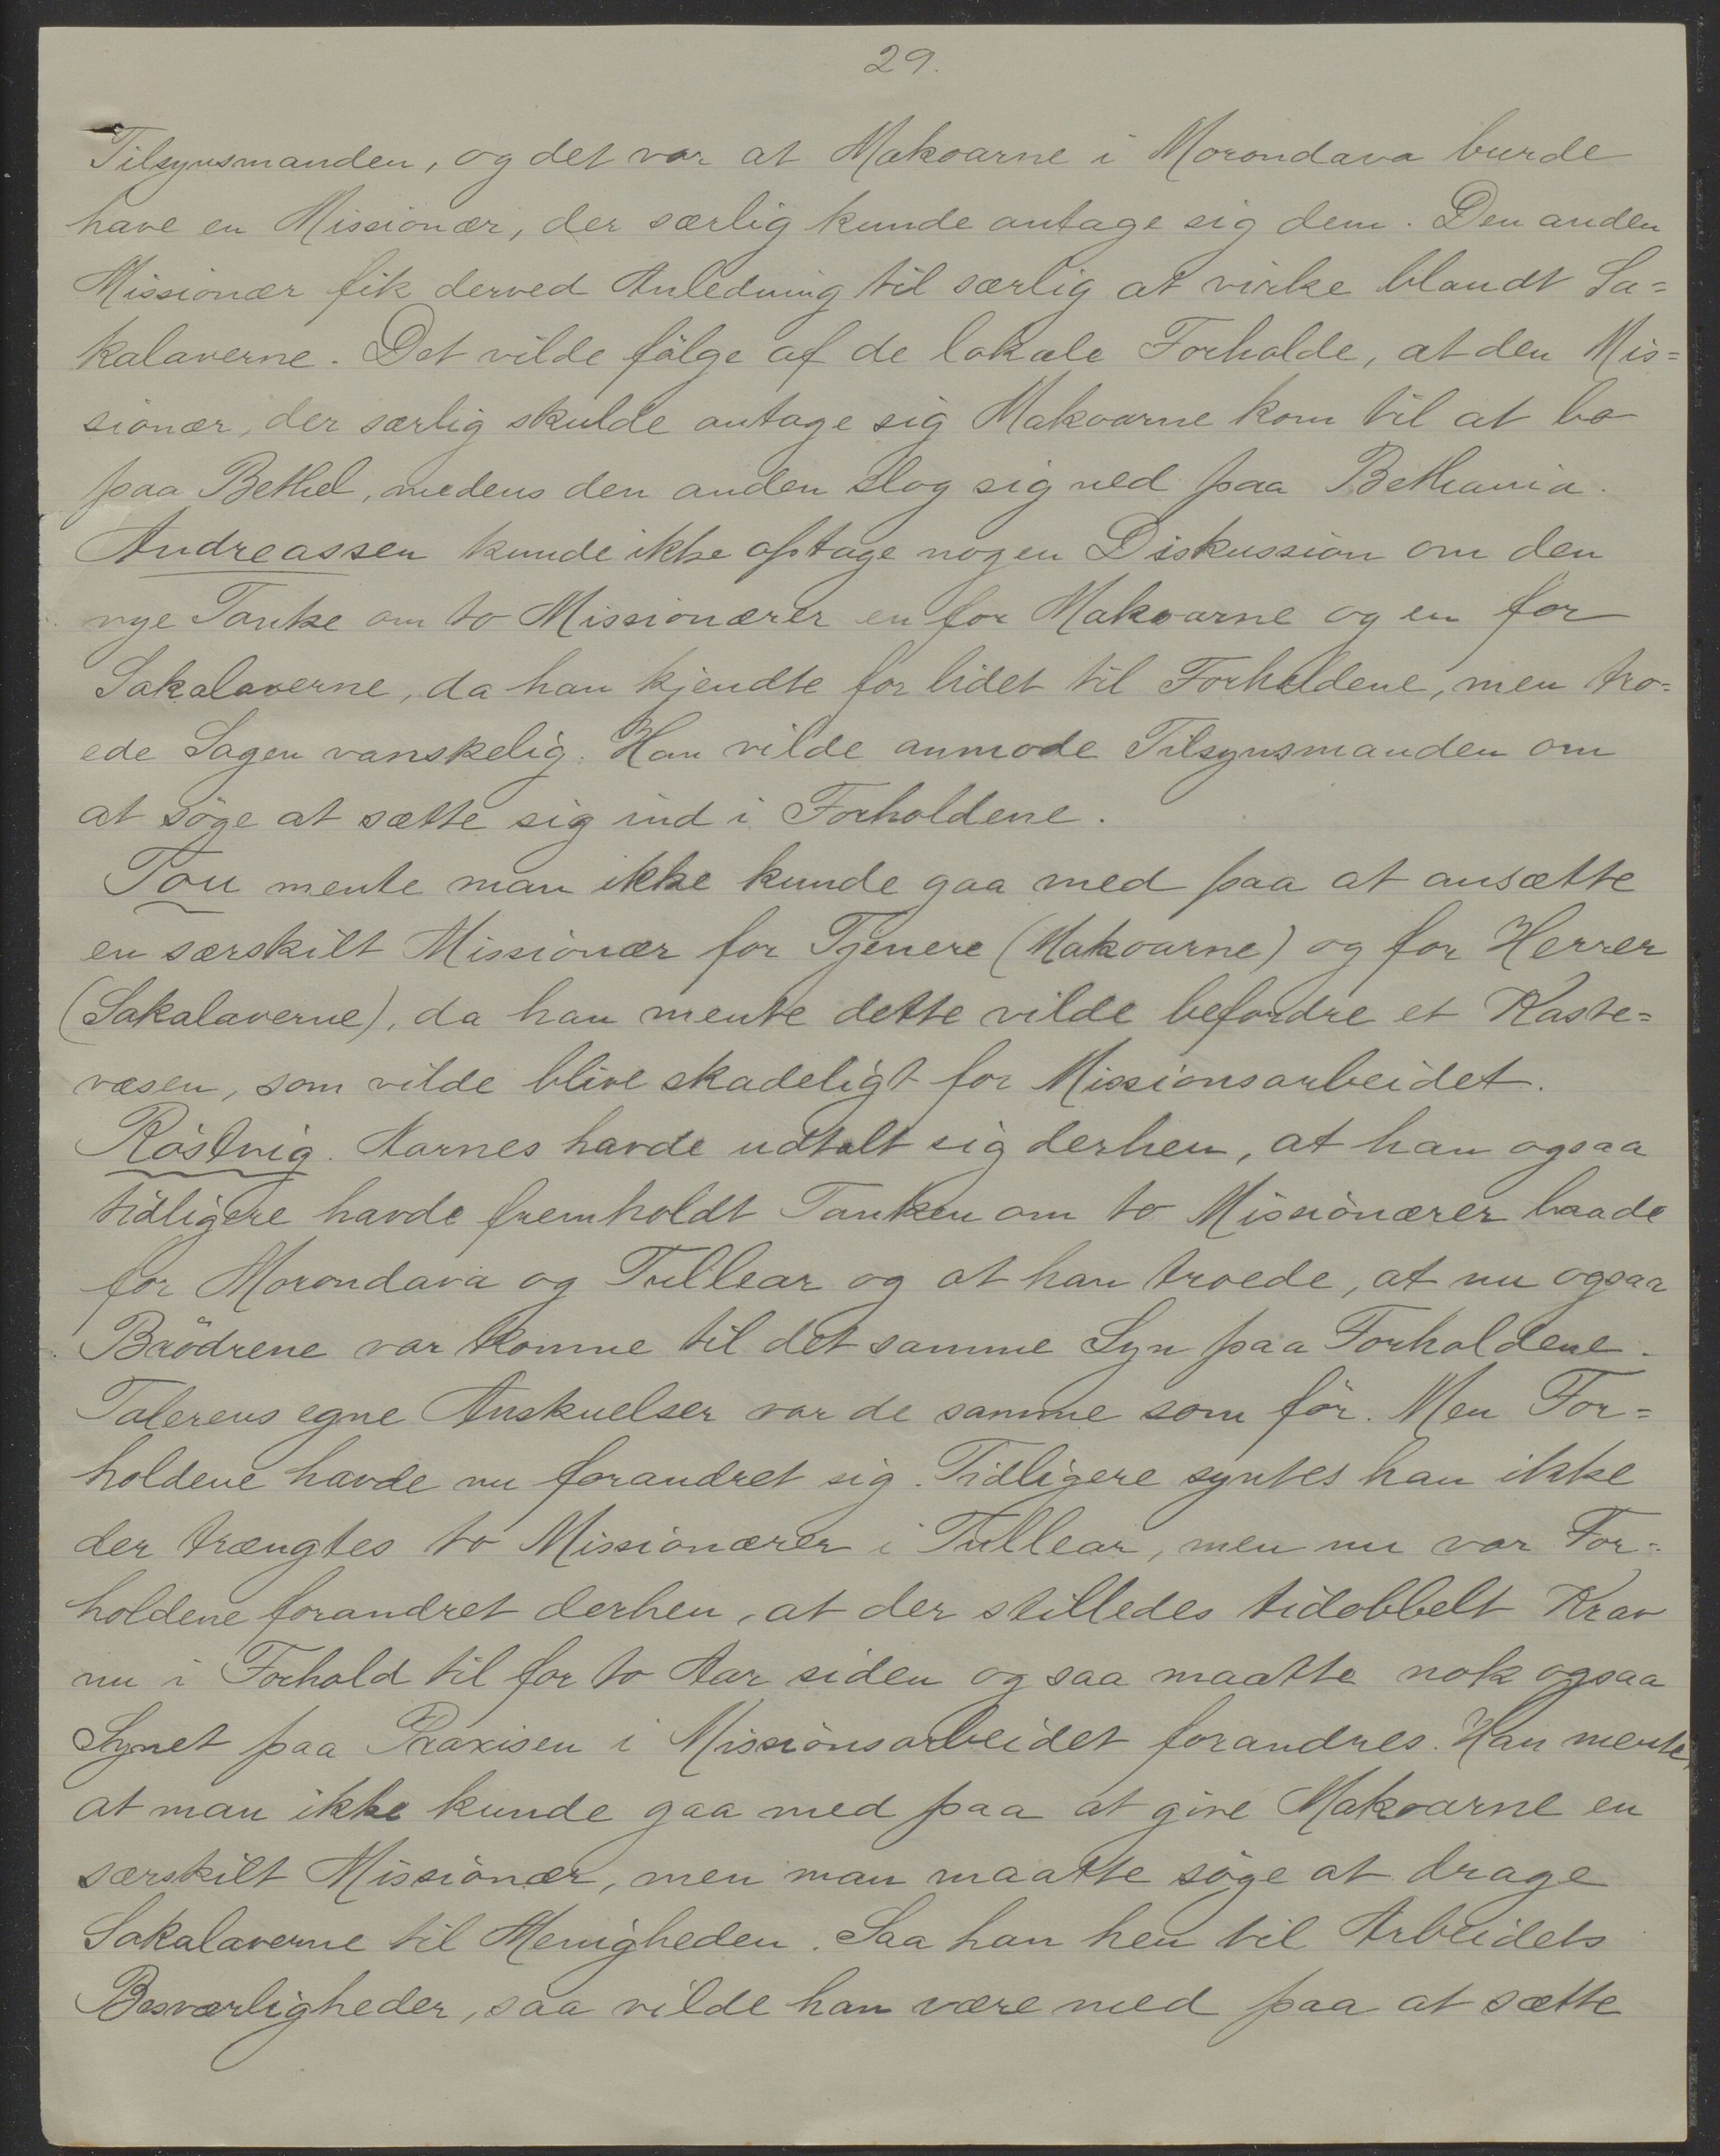 29.
Tilsynsmanden, og det var at Makoarne i Morondava burde
have en Missionær, der særlig kunde antage sig dem. Den anden
Missionær fik derved Anledning til særlig at virke blandt Sa=
kalaverne. Det vilde fölge af de lokale Forholde, at den Mis=
sionær, der særlig skulde antage sig Makoarne kom til at bo
paa Bethel, medens den anden slog sig ned paa Bethania.
Andreassen kunde ikke optage nogen Diskussion om den
nye Tanke om to Missionærer en for Makoarne og en for
Sakalaverne, da han kjendte for lidet til Forholdene, men tro=
ede Sagen vanskelig. Han vilde anmode Tilsynsmanden om
at söge at sætte sig ind i Forholdene.
Tou mente man ikke kunde gaa med paa at ansætte
en særskilt Missionær for Tjenere (Makoarne) og for Herrer
(Sakalaverne), da han mente dette vilde befordre et Kaste=
væsen, som vilde blive skadeligt for Missionsarbeidet.
Röstvig. Aarnes havde udtalt sig derhen, at han ogsaa
tidligere havde fremholdt Tanken om to Missionærer baade
for Morondava og Tullear og at han troede, at nu ogsaa
Brödrene var komne til det samme Syn paa Forholdene.
Talerens egne Anskuelser var de samme som för. Men For=
holdene havde nu forandret sig. Tidligere syntes han ikke
der trængtes to Missionærer i Tullear, men nu var For=
holdene forandret derhen, at der stilledes tidobbelt Krav
nu i Forhold til for to Aar siden og saa maatte nok ogsaa
Synet paa Praxisen i Missionsarbeidet forandres. Han mente,
at man ikke kunde gaa med paa at give Makoarne en
særskilt Missionær, men man maatte söge at drage
Sakalaverne til Menigheden. Saa han hen til Arbeidets
Besværligheder, saa vilde han være med paa at sætte